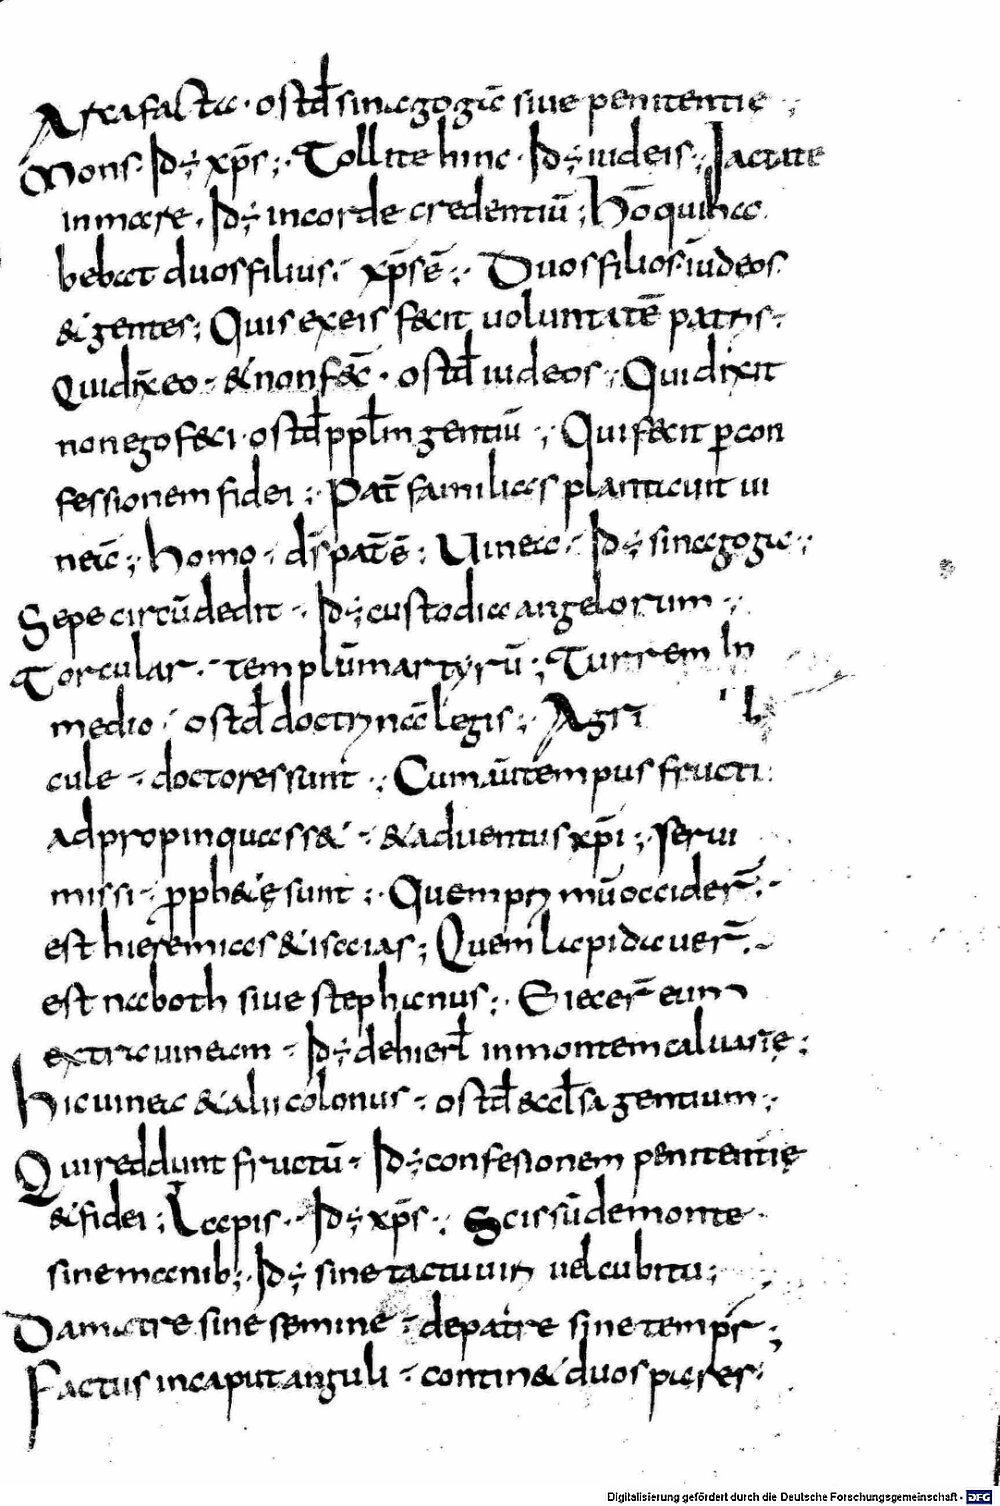 Arafacta · ostd̄ sinagogā sive penitentię ·;
Mons · Id÷ xp̄s ;· Tollite hinc · Id÷ iudeis ;· Iactate
in mare · Id÷ in corde credentiū ; Hō qui ha
bebat duos filius · xp̄s ē ;· Duos filios · iūdeos
& gentes ; Quis ex eis fecit voluntatē patris ·
Qui dix̄ eo · & non fec̄ · ostd̄ iudeos ·; Qui dixit
non ego feci · ostd̄ ppl̄m gentiū ·; Qui fecit p̱ con
fessionem fidei ;· Pat̄ familias plantavit ui
neā ;· homo · dī pat̄ ē : Uinea · Id÷ sinagoga ·;
Sepe circūdedit · Id÷ custodia angelorum ·;
Torcular · templū martyrū ; Turrem In
medio · ostd̄ doctrinā legis ; Agri
cule · doctores sunt ·; Cum aūt tempus fructi
adpropinquass& · & adventus xp̄i ; · servi
missi · proph&ę sunt ;· Quem primū occider̄ ·
est hieremias & isaias ; Quem lapidauer̄ ·
est naboth sive stephanus ;· Eiecer̄ eum
extra uineam · Id÷ de hierl̄ in montem caluarię :
Hic uinea & alii colonus · ostd̄ eccl̄sa gentium ·;
Qui reddunt fructū · Id÷ confesionem penitentię
& fidei ; Lapis · Id÷ xp̄s ·; Scissū de monte ·
sine manib; · Id÷ sine tactu uiri uel cubitu ;
Da matre sine semine · de patre sine temp̄r ;
Factus in caput anguli · contin& duos pares ·
Digitalisierung gefördert durch die Deutsche Forschungsgemeinschaft - DFG